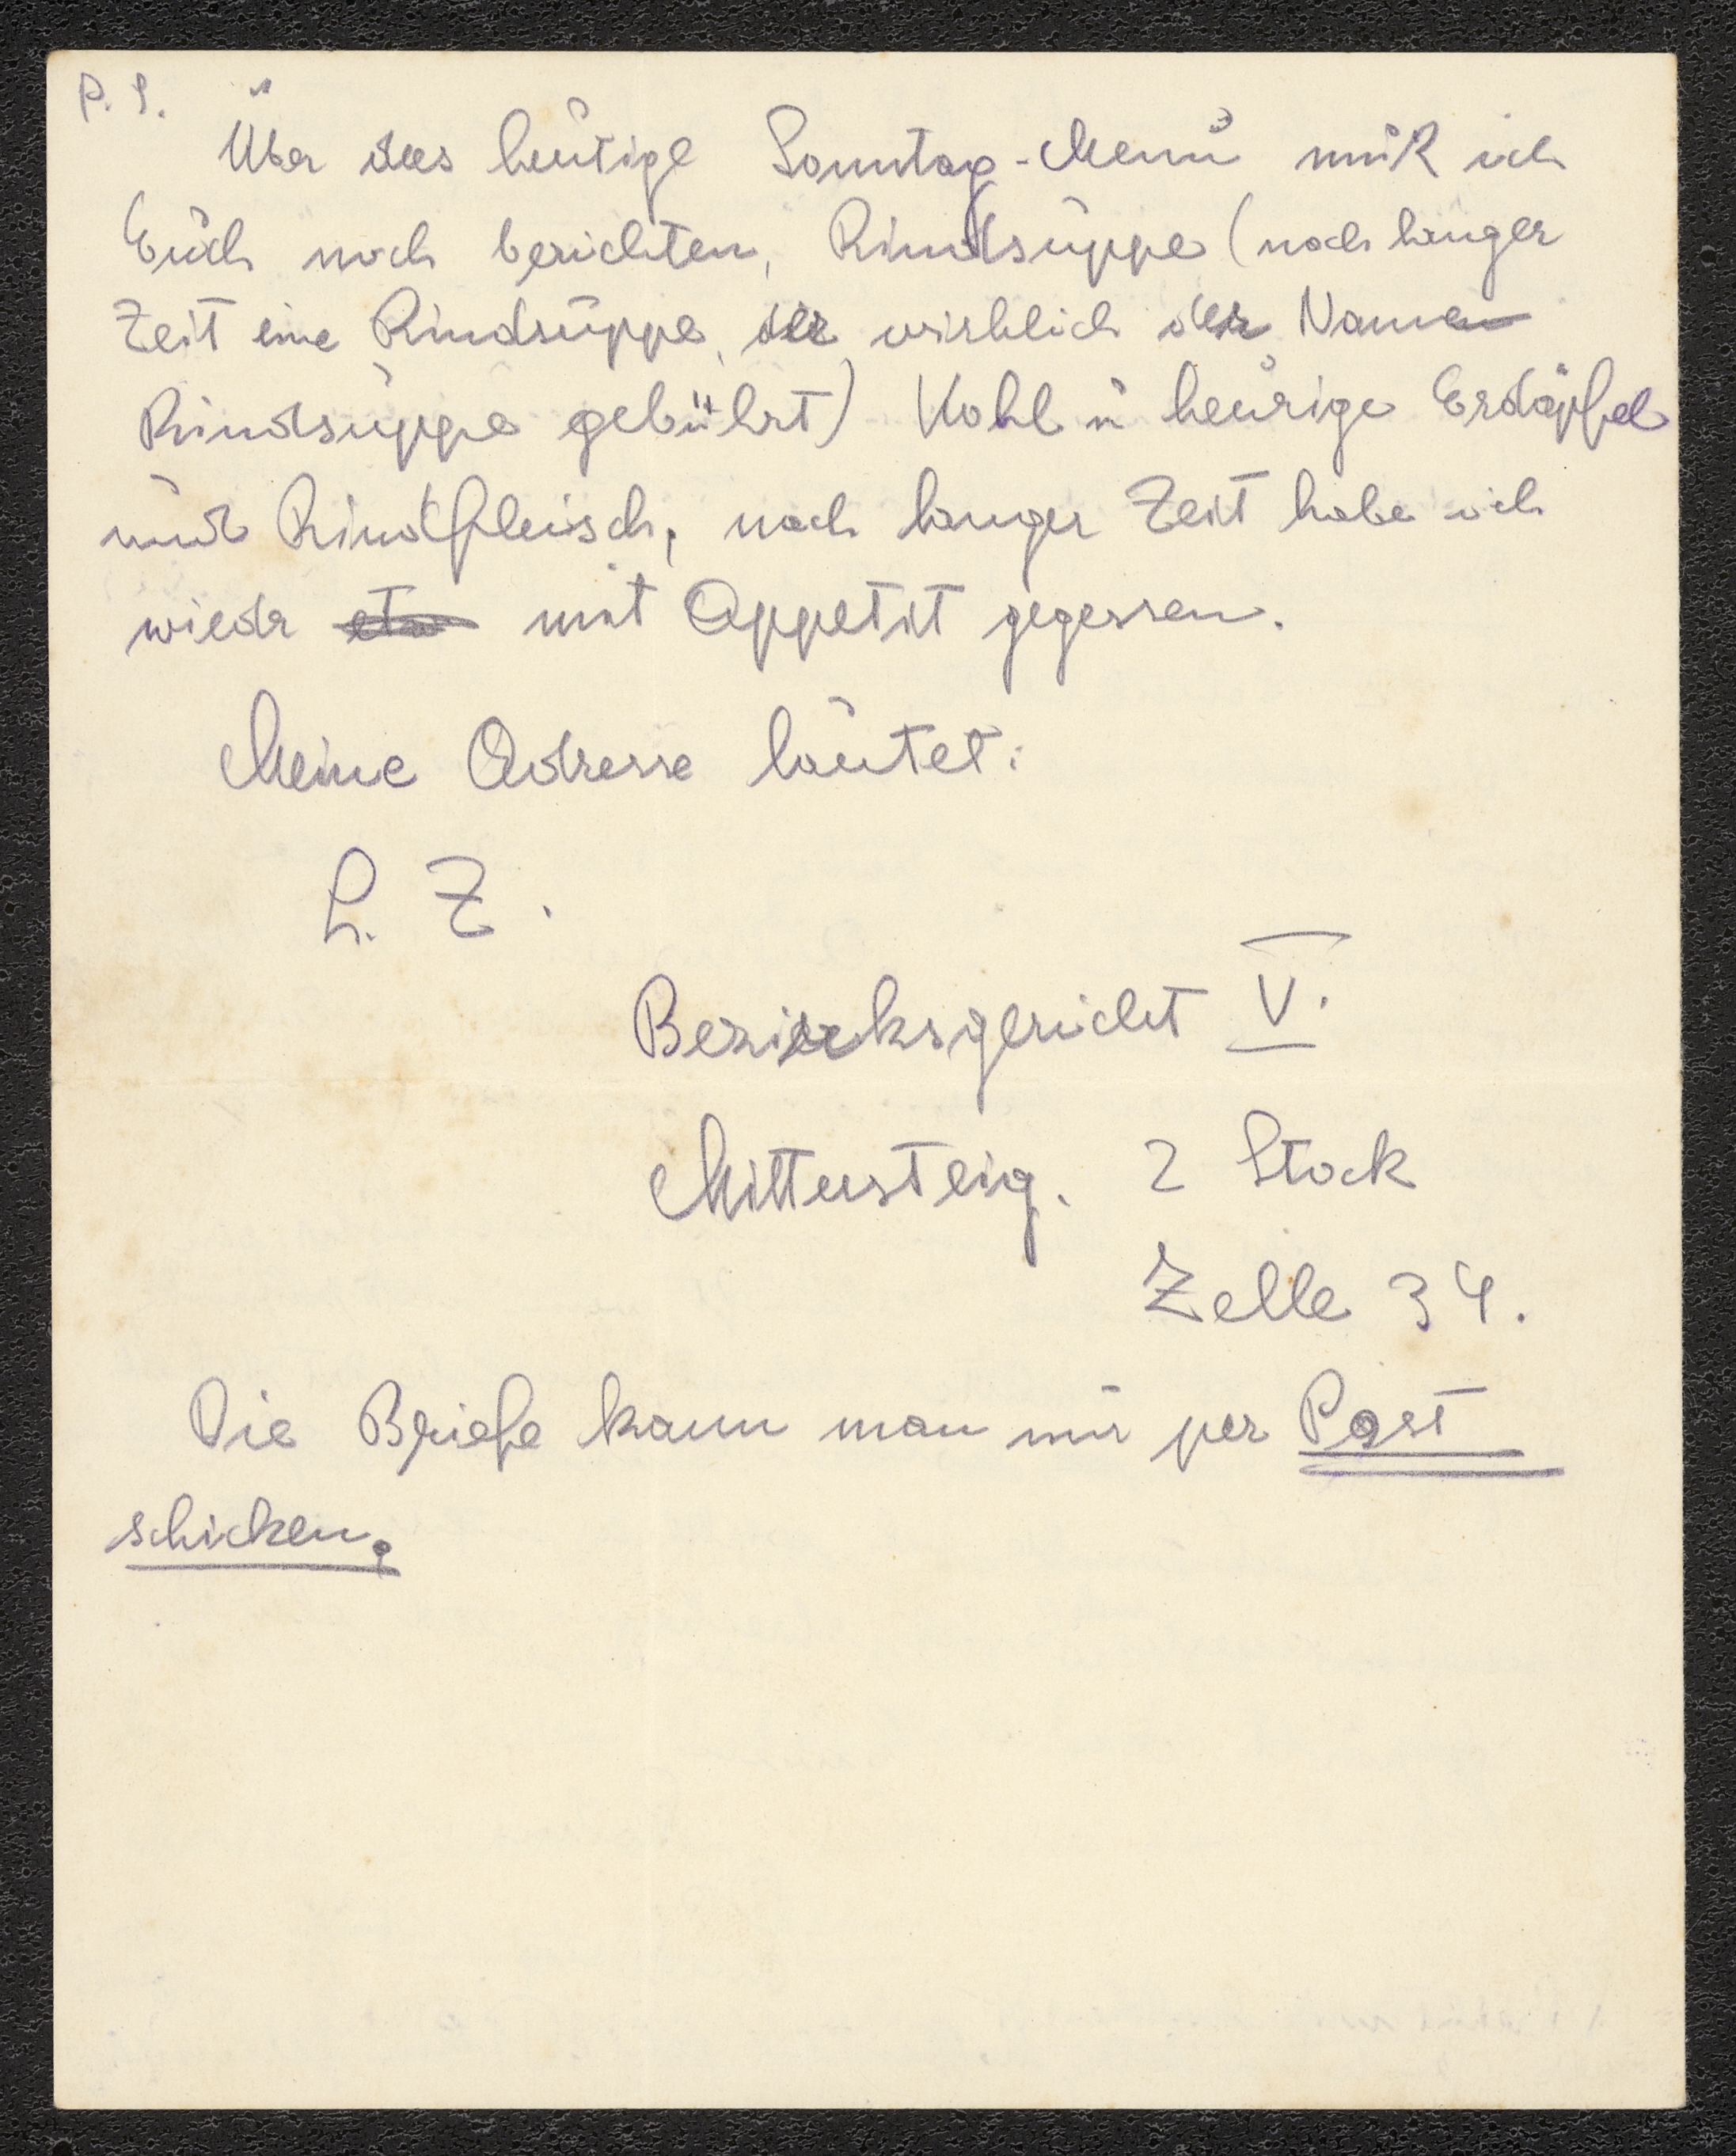 P. S.
Über das heutige Sonntag-Menü muß ich
Euch noch berichten, Rindsuppe (nach langer
Zeit eine Rindsuppe, der wirklich der Name
Rindsuppe gebührt) Kohl u heurige Erdäpfel
und Rindfleisch, nach langer Zeit habe ich
wieder mit Appetit gegessen.
Meine Adresse lautet:
L. Z.
Bezirksgericht V.
Mittersteig. 2 Stock
Zelle 34.
Die Briefe kann man mir per Post
schicken.